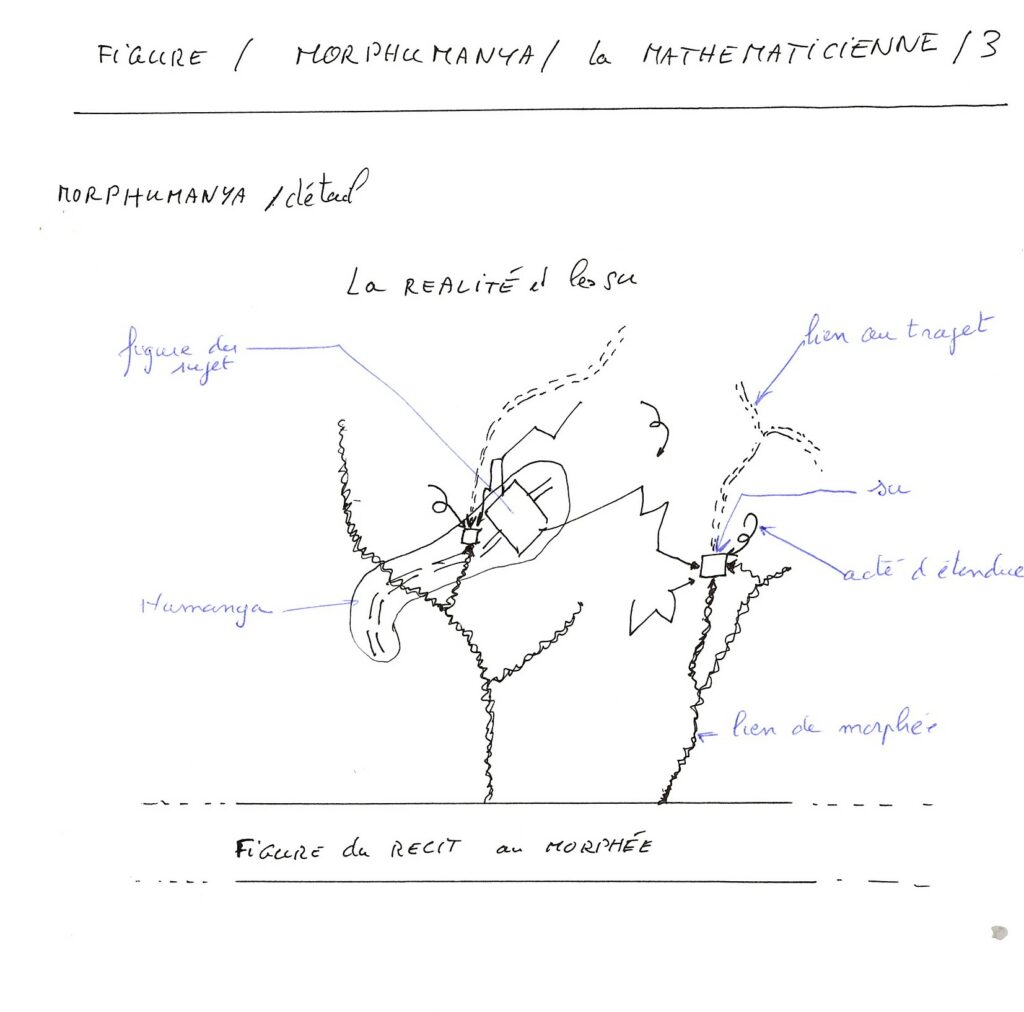 FIGURE / MORPHUMANYA / la MATHEMATICIENNE / 3
MORPHUMANYA / détail
La REALITÉ et les su
figure du
sujet
lien au trajet
su
acté d'étendue
Humanya
lien de morphée
FIGURE du RECIT au MORPHÉE